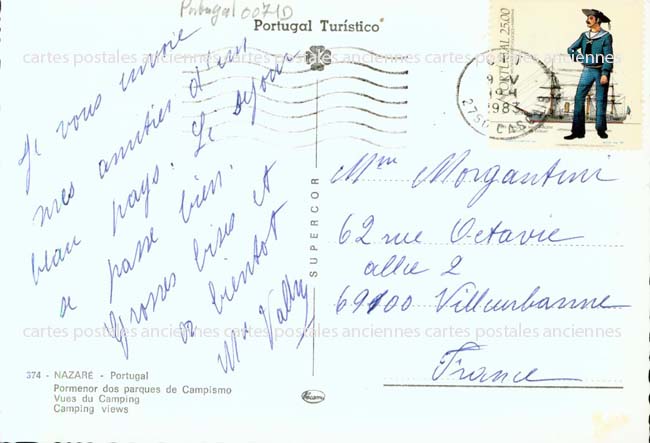 Portugal 0071D
Portugal Turístico
PORTUGAL 25.00
1983
2750 CASCAIS
cartes postales anciennes cartes postales anciennes cartes postales anciennes
Je vous envoie
mes amitiés d'un
beau pays. Le séjour
se passe bien.
Grosses bises et
à bientôt
SUPERCOR
Mme Morgantini
62 rue Octavie
allée 2
69100 Villeurbanne
France
cartes postales anciennes cartes postales anciennes cartes postales anciennes
374 - NAZARÉ - Portugal
Pormenor dos parques de Campismo
Vues du Camping
Camping views